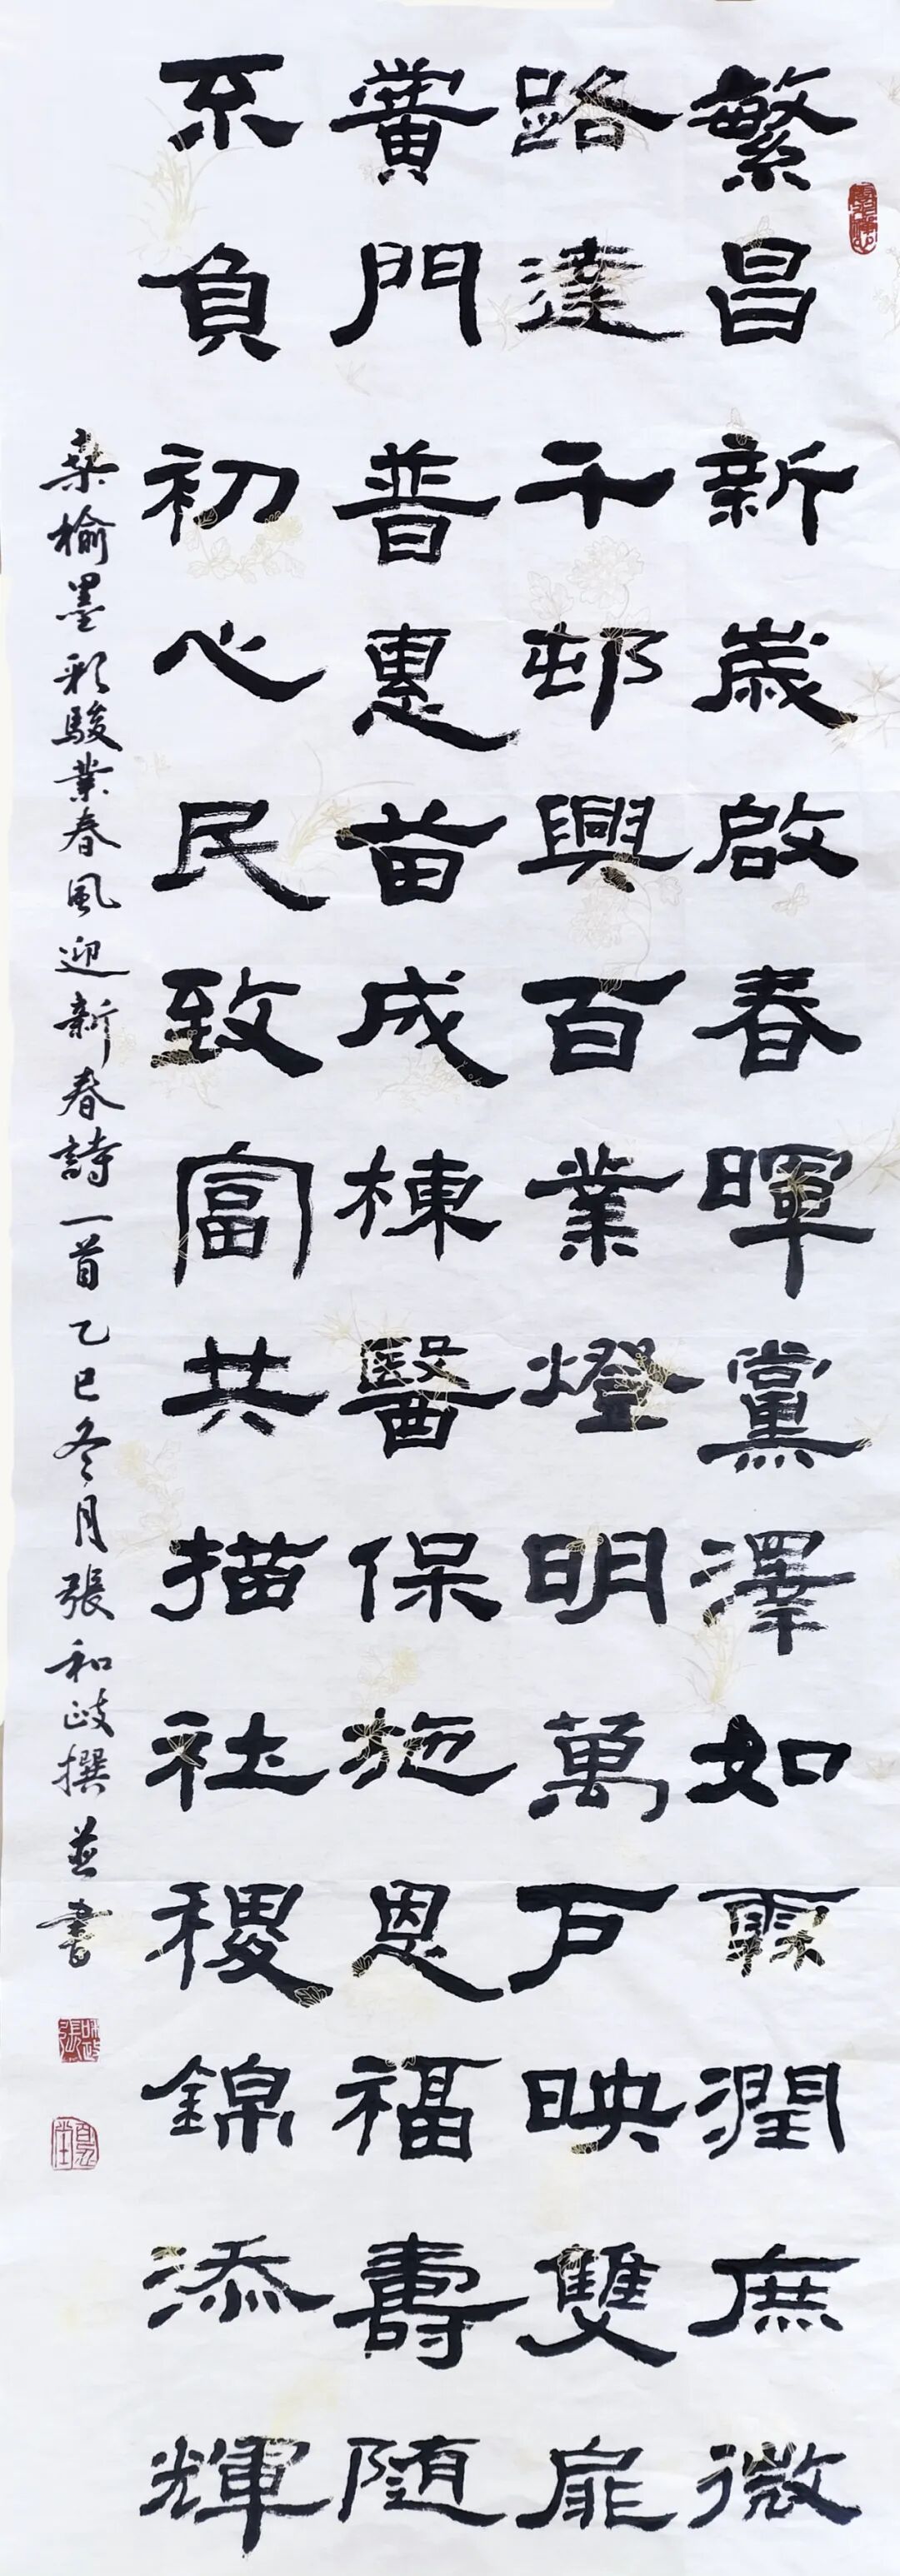 繁昌新歲啟春暉黨澤如霖潤庶微
路達千邨興百業燈明萬戶映雙扉
黌門普惠苗成棟醫保施恩福壽隨
不負初心民致富共描社稷錦添輝
桑榆墨彩駿業春風迎新春詩一首乙巳冬月張和歧撰並書